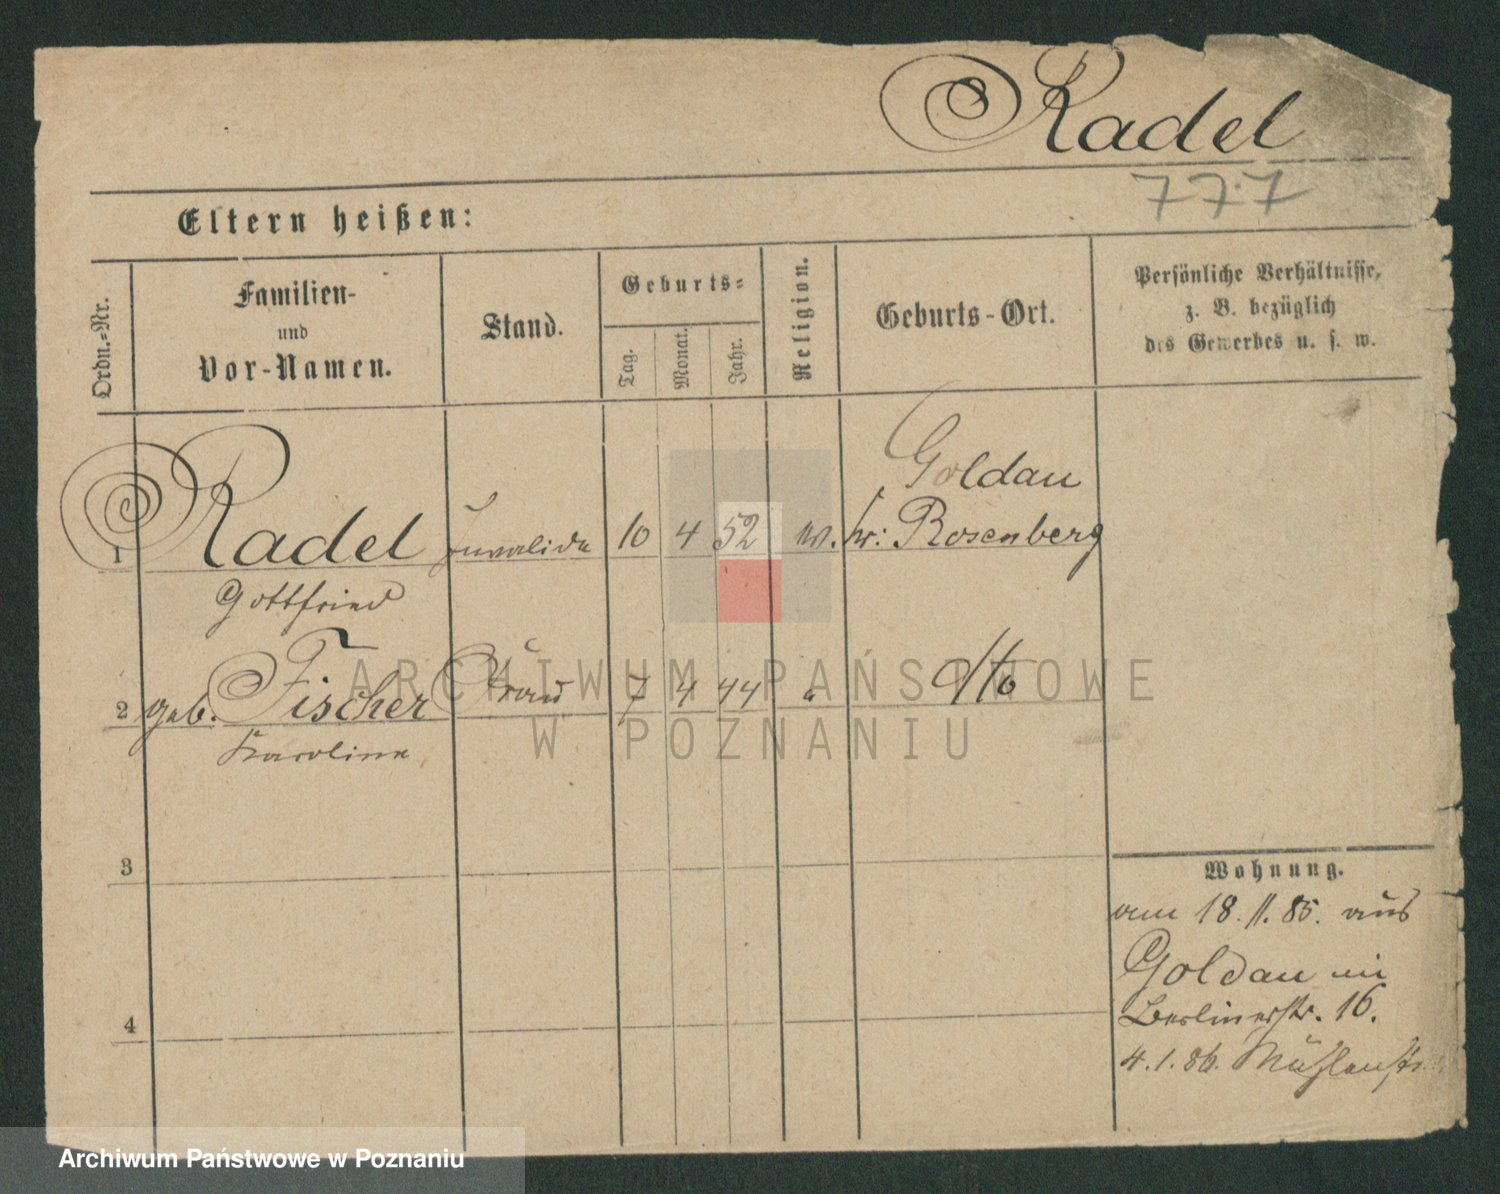 Radel
777
Eltern heißen:
Ordn.-Nr.
Familien-
und
Vor-Namen.
Stand.
Geburts-
Tag.
Monat.
Jahr.
Religion.
Geburts-Ort.
Persönliche Verhältnisse,
z. B. bezüglich
des Gewerbes u. s. w.
Goldau
1 Radel Invalide 10 4 52 Kr: Rosenberg
Gottfried
2 geb. Fischer Frau 7 4 44 " dto
Karoline
3
4
Wohnung.
am 18. 11. 85. aus
Goldau in
Berlinerstr. 16.
4. 1. 86. Mühlenstr.
ARCHIWUM PAŃSTWOWE
W POZNANIU
Archiwum Państwowe w Poznaniu